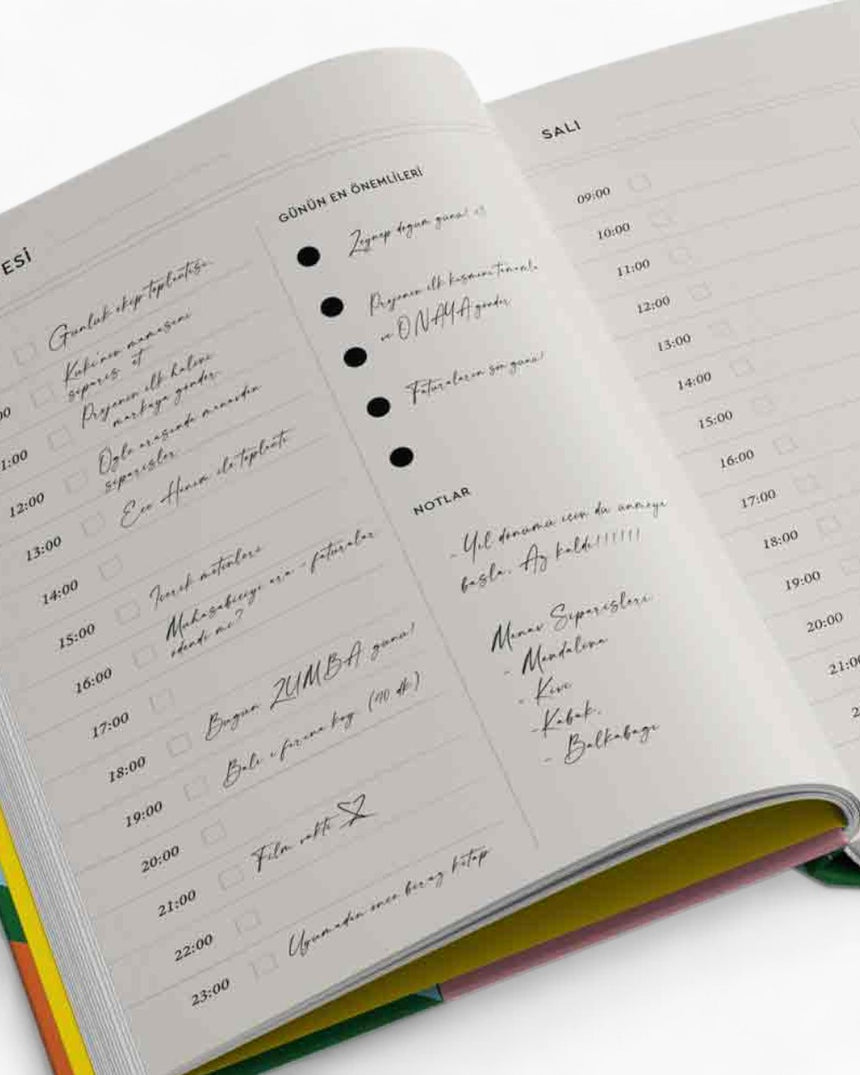 ESİ
Günlük ekip toplantısı
00
Kuki'nin mamasını
sipariş et
1:00
Projenin ilk halini
markaya gönder.
12:00
Öğle arasında manavdan
siparişler
13:00 Ece Hanım ile toplantı
14:00
15:00 İçerik metinleri
16:00 Muhasebeciyi ara - faturalar
ödendi mi?
17:00
18:00 Bugün ZUMBA günü!
19:00 Balı ı fırına koy. (40 dk)
20:00
21:00 Film vakti
22:00
23:00 Uyumadan önce biraz kitap
GÜNÜN EN ÖNEMLİLERİ
Zeynep doğum günü!
Projenin ilk kısmını tamamla
ve ONAYA gönder
Faturaların son günü!
NOTLAR
- Yıl dönümü için düşünmeye
başla. Ay kaldı!!!!!!
Manav Siparişleri
- Mandalina
- Kivi
- Kabak.
- Balkabağı
SALI
09:00
10:00
11:00
12:00
13:00
14:00
15:00
16:00
17:00
18:00
19:00
20:00
21:00
2